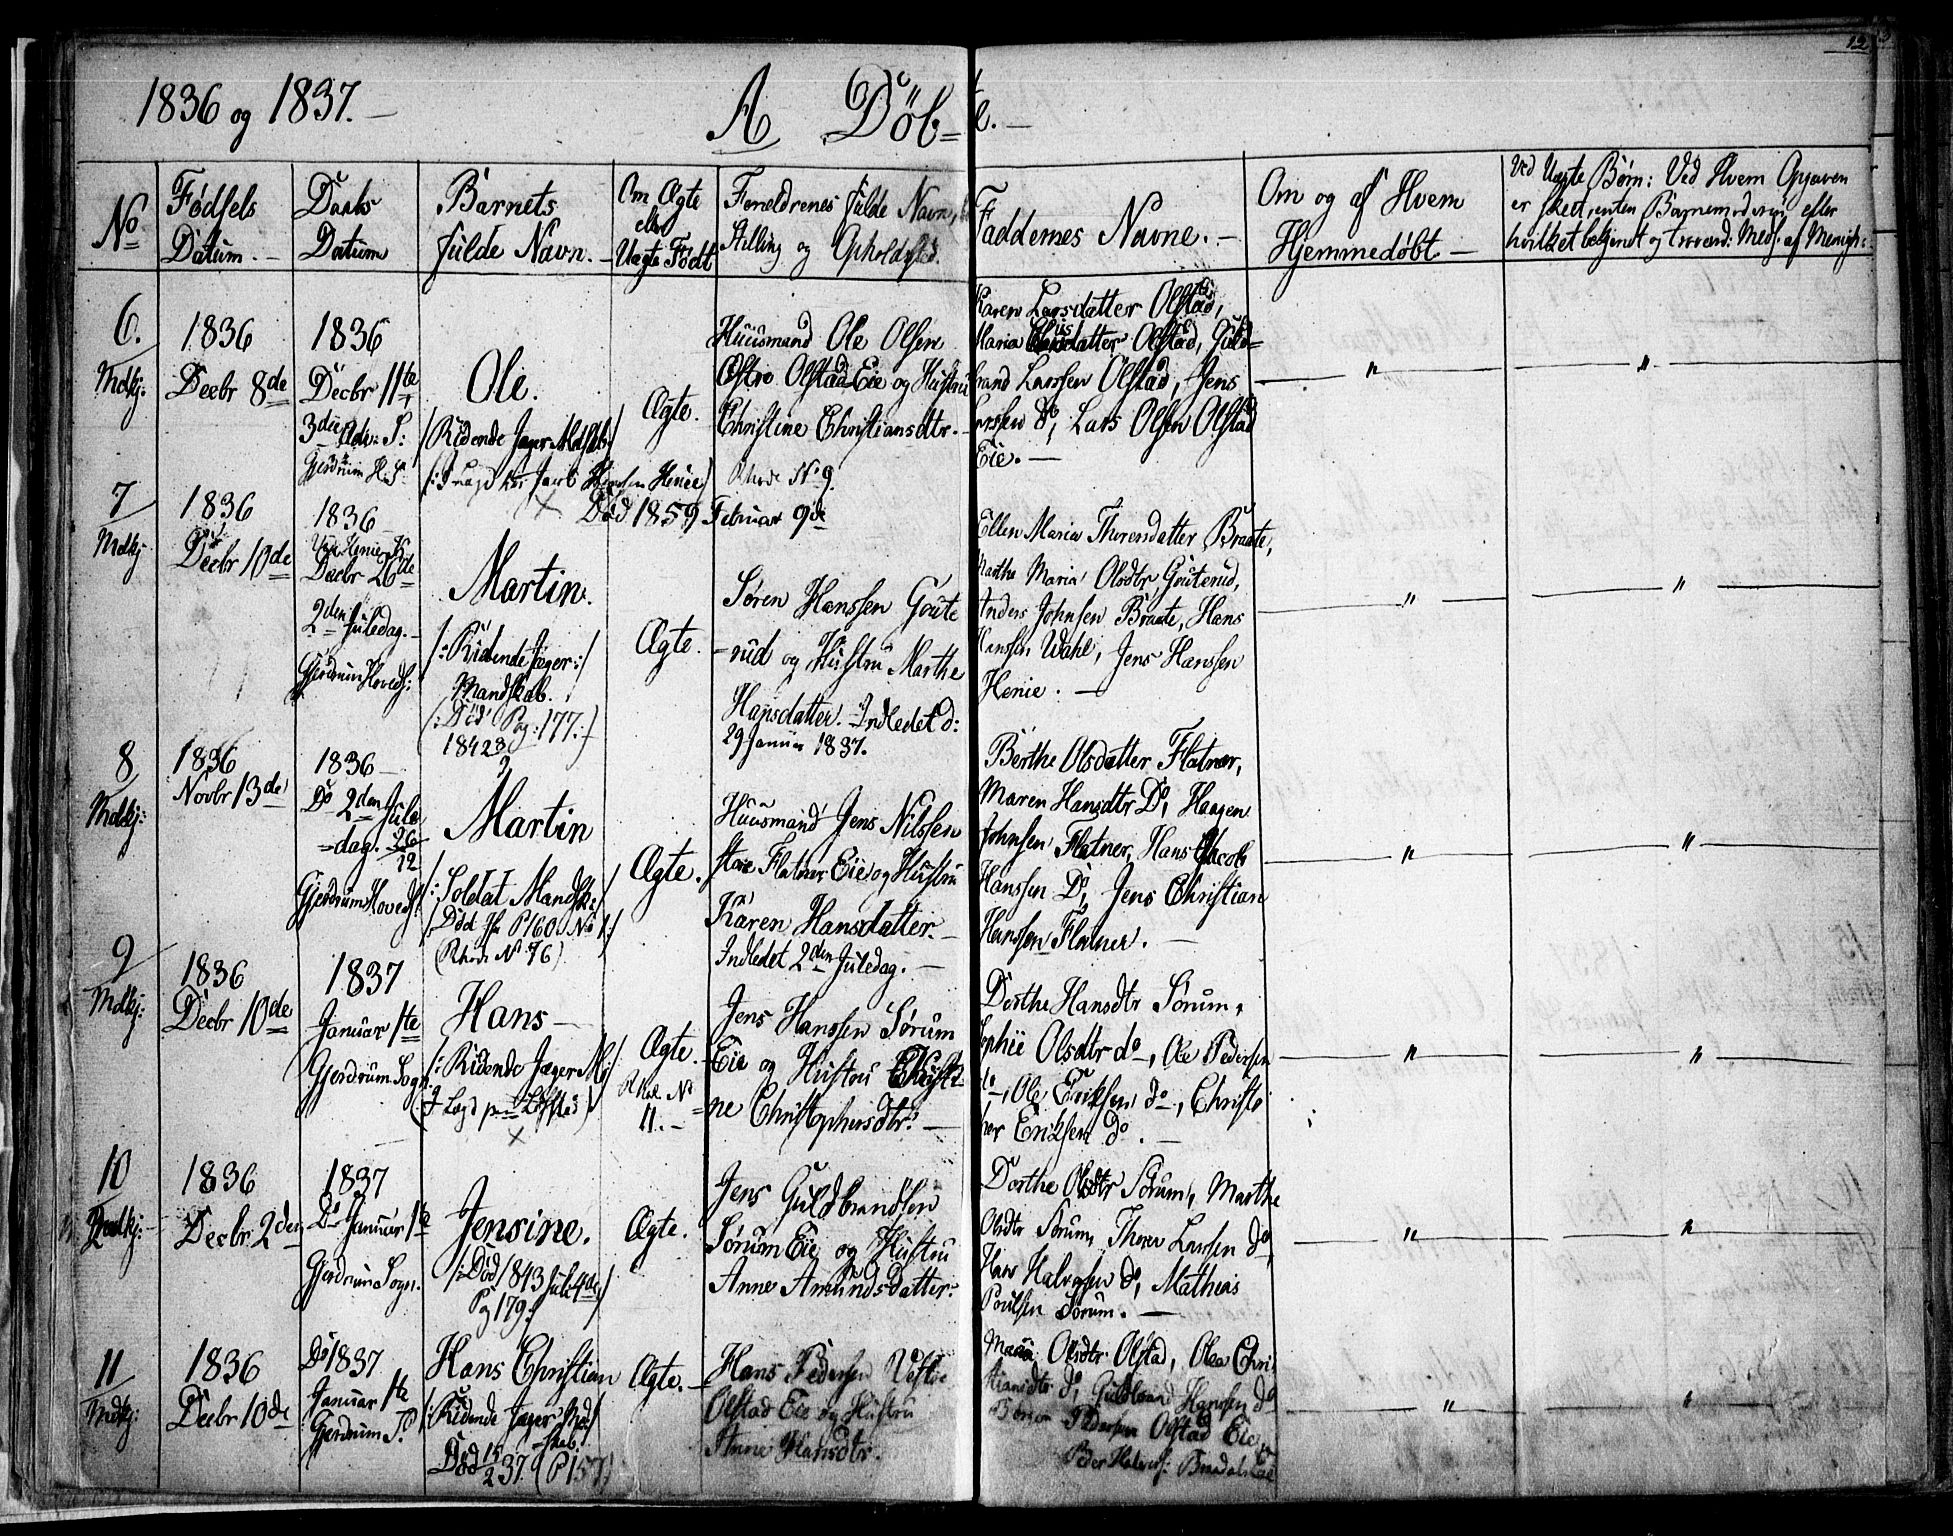 12
1836 og 1837. —
A Döb=
te. —
No
Födsels
Datum. —
Daabs
Datum
Barnets
fulde Navn. —
Om Ægte
eller
Uægte Födt
Forældrenes fulde Navn,
Stilling og Opholdsted.
Faddernes Navne. —
Om og af Hvem
Hjemmedøbt. —
Ved Uægte Børn: Ved Hvem Opgaven
er skeet, enten Barnemoderen, eller
hvilket bekjendt og troværd: Medl. af Menigh:
6.
Mdkj.
1836
Decbr 8de
1836
Decbr 11te
3die Adv: S:
Gjerdrum
Ole.
/:Ridende Jæger
Ægte.
Huusmand Ole Olsen
Østre Olstad Eie og Hustru
Christine Christiansdtr. —
No 9.
Karen Larsdatter Olstad,
Maria datter Olstad, Guld=
brand Larssen Olstad, Jens
Larssen do, Lars Olsen Olstad
Eie. —
"
"
Död 1859 Februar 9de
7
Mdkj
1836
Decbr 10de
1836
Decbr 26de
2den Juledag. —
Gjerdrum Hoveds:
Martin.
/:Ridende Jæger:/
Mandskab.
/:Död Pag: 177.
1842
Ægte.
Søren Hanssen Graute
rud og Hustru Marthe
Hansdatter. Indledet d:
29 Januar 1837.
Ellen Maria Thorensdatter Braate,
Marthe Maria Olsdtr, Grauterud,
Anders Johnsen Braate, Hans
Hanssen Wahl, Jens Hanssen
Henie. —
"
"
8
Mdkj:
1836
Novbr 13de
1836 —
Do 2den Jule
=dag. 26/12
Gjerdrum Hoveds:
Martin
/:Soldat Mandsk:/
Död P 160 No 1:/
No 76)
Ægte.
Huusmand Jens Nilssen
store Flatner Eie og Hustru
Karen Hansdatter. —
Indledet 2den Juledag. —
Berthe Olsdatter Flatner,
Maren Hansdtr Do, Haagen
Johnsen Flatner, Hans Jacob
Hanssen Do, Jens Christian
Hanssen Flatner. —
"
"
9
Mdkj:
1836
Decbr 10de
1837
Januar 1te
Gjerdrum Sogn.
Hans —
/:Ridende Jæger M:/
Ægte.
No
11. —
Jens Hanssen Sörum
Eie og Hustru Christi=
=ne Christophersdtr. —
Dorthe Hansdtr Sörum,
Sophie Olsdtr do, Ole Pedersen
do, Ole Eriksen do, Christo
pher Eriksen do. —
"
"
10
1836
Decbr 2den
1837
Do Januar 1te
Gjerdrum Sogn.
Jensine.
/:Död 1843 Juli 4de/
Pag 179:/
Ægte.
Jens Guldbrandsen
Sörum Eie og Hustru
Anne Amundsdatter.
Dorthe Olsdtr Sörum, Marthe
Olsdtr Sorum, Thorer Larssen do
Hans Halvorsen do, Mathias
Poulsen Sorum. —
"
"
11
Mdkj:
1836
Decbr 10de
Do 1837
Januar 1te
Gjerdrum S.
Hans Christian
/:Ridende Jæger Mand
=skab:/
Död 15/2 37. (P 157)
Ægte. —
Hans Pedersen Vestre
Olstad Eie og Hustru
Anne Hansdtr.
Maria Olsdtr Olstad, Olea Chri
stiansdtr do, Guldbrand Hanssen do
Pedersen Olstad Eie,
Peder Halvors:
"
"